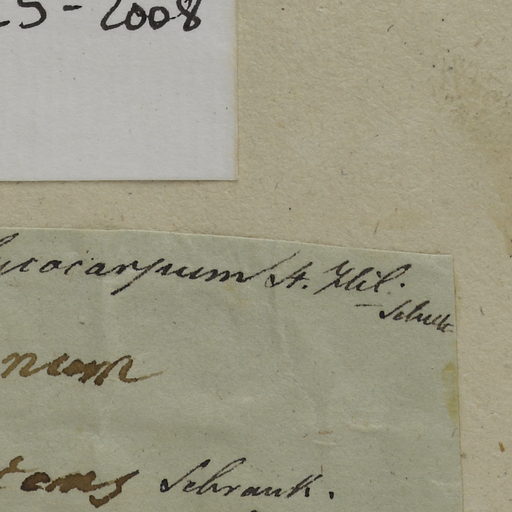 -2008
lycocarpum St. Hil.
Schult
num
tans Schrank.